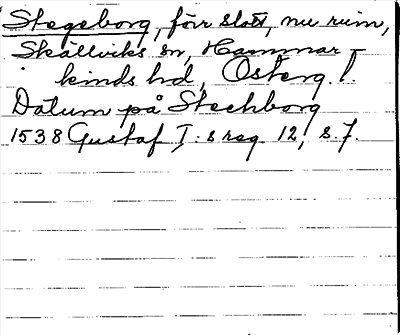 Stegeborg, förr slott, nu ruin,
Skällviks sn, Hammar-
kinds hd, Österg. l.
Datum på Steckborg
1538 Gustaf I:s reg 12, s. 7.